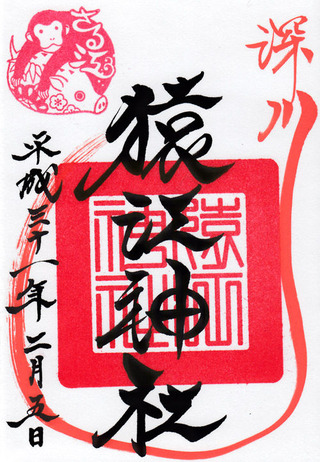 深川
猿江神社
猿江
神社
さるえ
平成三十一年二月五日